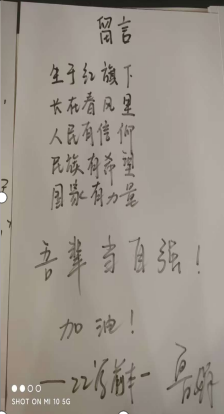 留言
生于红旗下
长在春风里
人民有信仰
民族有希望
国家有力量
吾辈当自强！
加油！
SHOT ON MI 10 5G